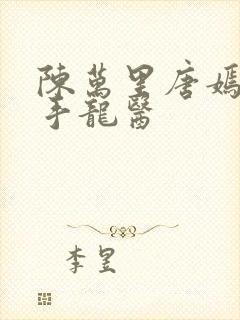 陳萬里唐嫣
手龍醫
李昱